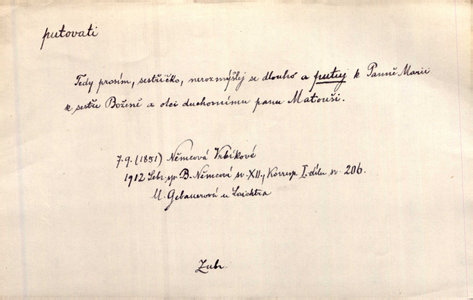 putovati
Tedy prosím, sestřičko, nerozmýšlej se dlouho a putuj k Panně Marii
k sestře Boženě a otci duchovnímu panu Matouši.
7.9. (1851) Němcová Vrbíkové
1912 Sebr. sp. B. Němcové sv. XII, Korresp. I. dílu s. 206.
M. Gebauerová u Laichtra
Zubr.